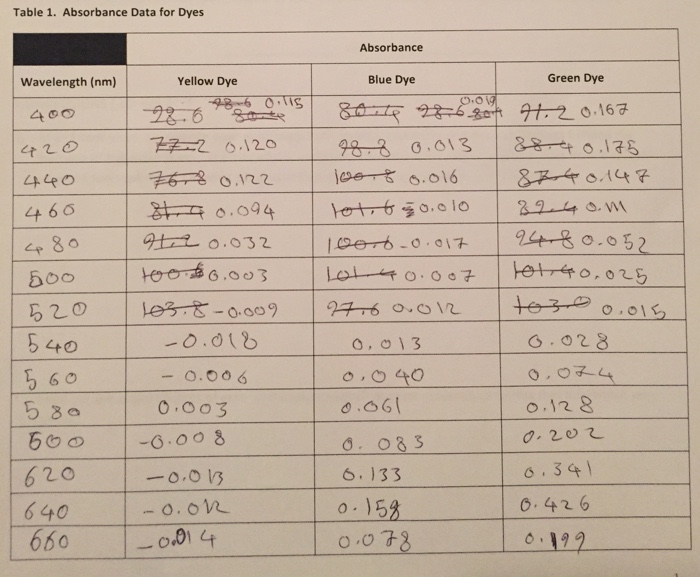 Table 1. Absorbance Data for Dyes
Absorbance
Wavelength (nm) Yellow Dye Blue Dye Green Dye
400 98.6 98.6 80.4 0.115 80.4 98.6 80.4 0.019 91.2 0.167
420 77.2 0.120 98.8 0.013 88.4 0.175
440 76.8 0.122 100.8 0.016 87.4 0.147
460 81.9 0.094 101.6 0.010 89.4 0.111
480 91.2 0.032 100.6 -0.017 94.8 0.052
500 0.003 101.4 0.007 101.4 0.025
520 103.8 -0.009 97.6 0.012 103.0 0.015
540 -0.018 0.013 0.028
560 -0.006 0.040 0.074
580 0.003 0.061 0.128
600 -0.008 0.083 0.202
620 -0.013 0.133 0.341
640 -0.012 0.158 0.426
660 -0.014 0.078 0.199